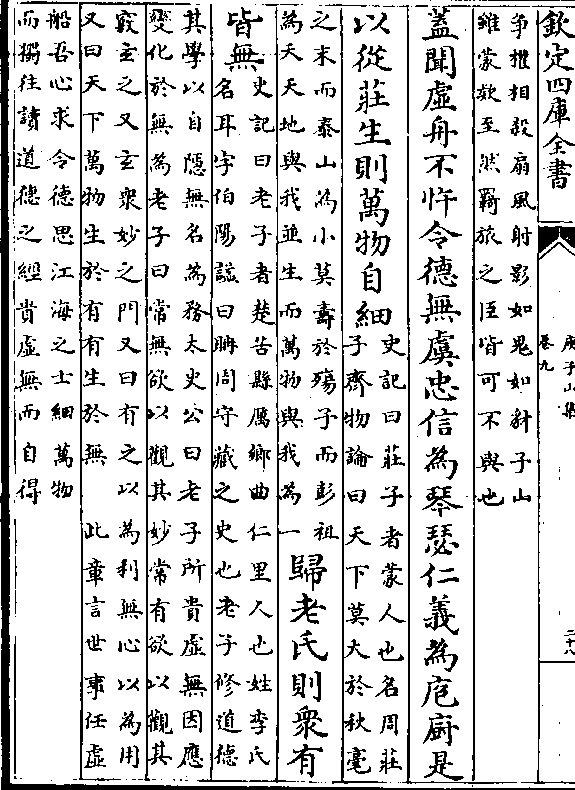 欽定四庫全書
庾子山集
卷九
二十八
爭權相殺扇風射影如鬼如
維蒙欬至然羇旅之臣皆可不與也
蓋聞虛舟不忤令德無虞忠信為琴瑟仁義為庖廚是
以從莊生則萬物自細
史記曰莊子者蒙人也名周莊
子齊物論曰天下莫大於秋毫
之末而泰山為小莫壽於殤子而彭祖
為夭天地與我並生而萬物與我為一
歸老氏則衆有
皆無
史記曰老子者楚苦縣厲鄉曲仁里人也姓李氏
名耳字伯陽諡曰聃周守藏之史也老子修道德
其學以自隱無名為務太史公曰老子所貴虛無因應
變化於無為老子曰常無欲以觀其妙常有欲以觀其
竅玄之又玄衆妙之門又曰有之以為利無心以為用
又曰天下萬物生於有有生於無
此章言世事任虛
船吾心求令德思江海之士細萬物
而獨往讀道德之經貴虛無而自得